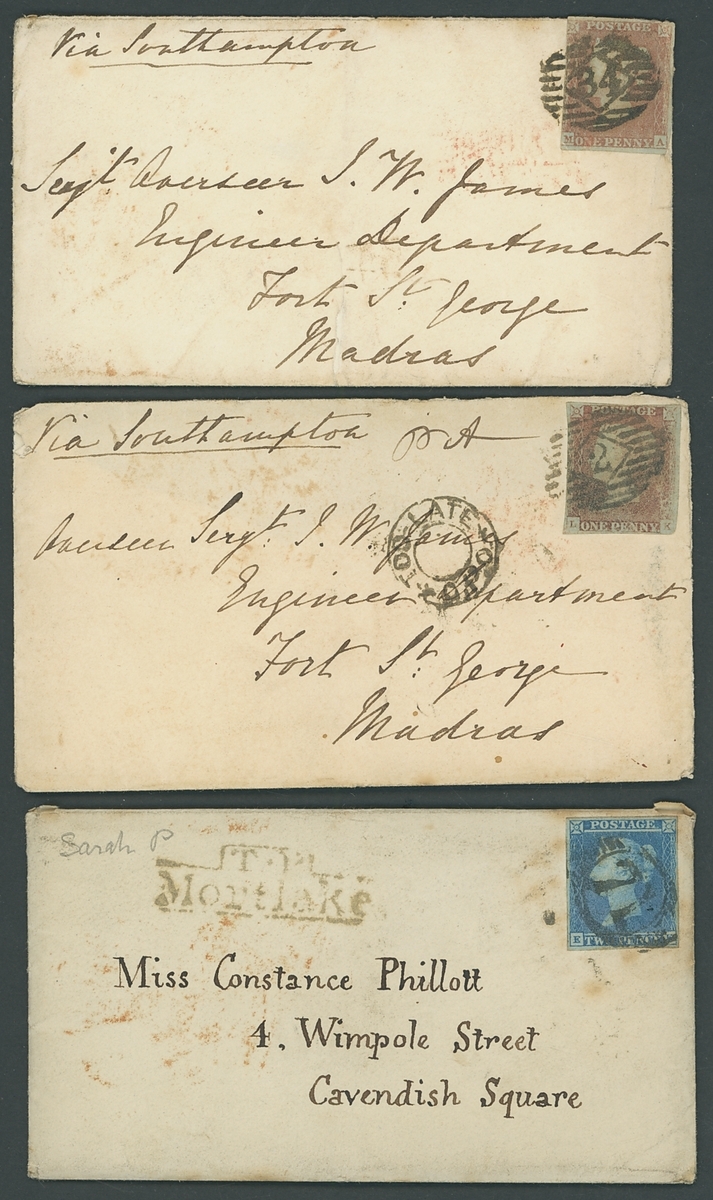 Via Southampton
POSTAGE
34
M ONE PENNY A
Sergt. Overseer J. W. James
Engineer Department
Fort St. George
Madras
Via Southampton
POSTAGE
2
L ONE PENNY K
Overseer Sergt. J. W. James
TOO-LATE
Engineer Department
Fort St. George
Madras
Sarah P
T.P
Mortlake
POSTAGE
E TWO PENCE
Miss Constance Phillott
4, Wimpole Street
Cavendish Square